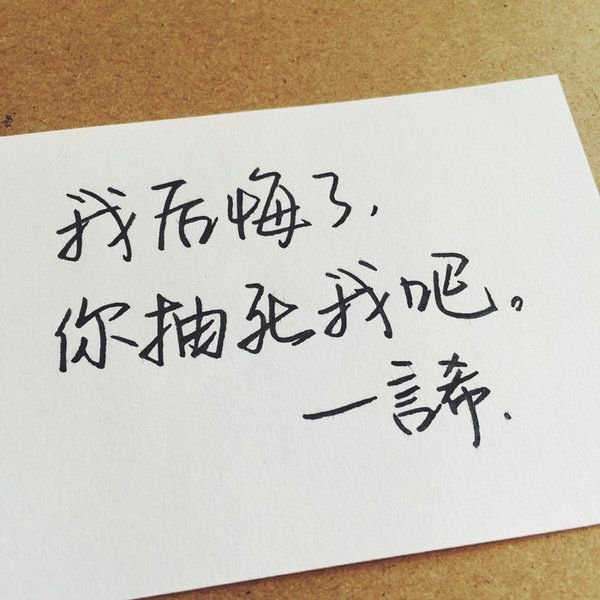 我后悔了,
你抽死我吧。
一諙.